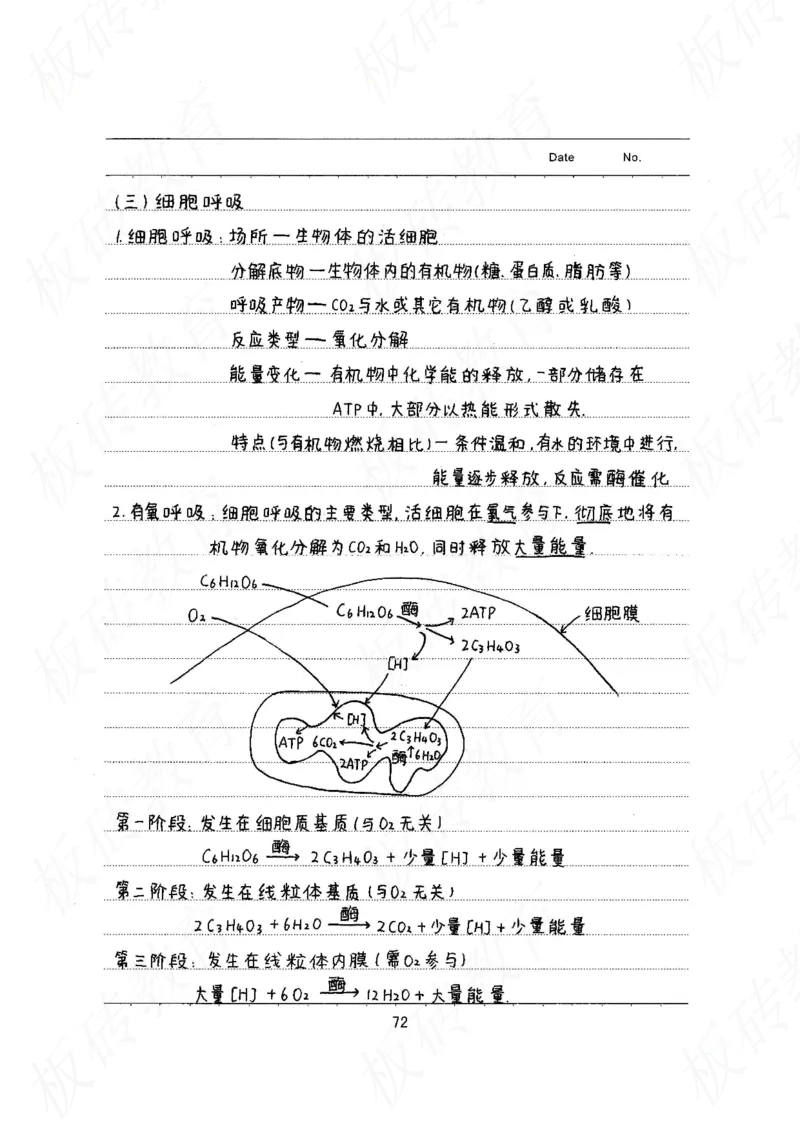 Date No.
(三)细胞呼吸
1.细胞呼吸:场所一生物体的活细胞
分解底物一生物体内的有机物(糖、蛋白质、脂肪等)
呼吸产物一CO2与水或其它有机物(乙醇或乳酸)
反应类型一氧化分解
能量变化一有机物中化学能的释放,一部分储存在
ATP中,大部分以热能形式散失.
特点(与有机物燃烧相比)一条件温和,有水的环境中进行,
能量逐步释放,反应需酶催化
2.有氧呼吸:细胞呼吸的主要类型,活细胞在氧气参与下,彻底地将有
机物氧化分解为CO2和H2O,同时释放大量能量.
C6H12O6
O2
C6H12O6 酶 2ATP
细胞膜
2C3H4O3
[H]
[H]
ATP 6CO2 2C3H4O3
2ATP 酶 6H2O
第一阶段:发生在细胞质基质(与O2无关)
C6H12O6 酶→ 2C3H4O3+少量[H]+少量能量
第二阶段:发生在线粒体基质(与O2无关)
2C3H4O3+6H2O 酶→ 2CO2+少量[H]+少量能量
第三阶段:发生在线粒体内膜(需O2参与)
大量[H]+6O2 酶→ 12H2O+大量能量.
72
板砖教育